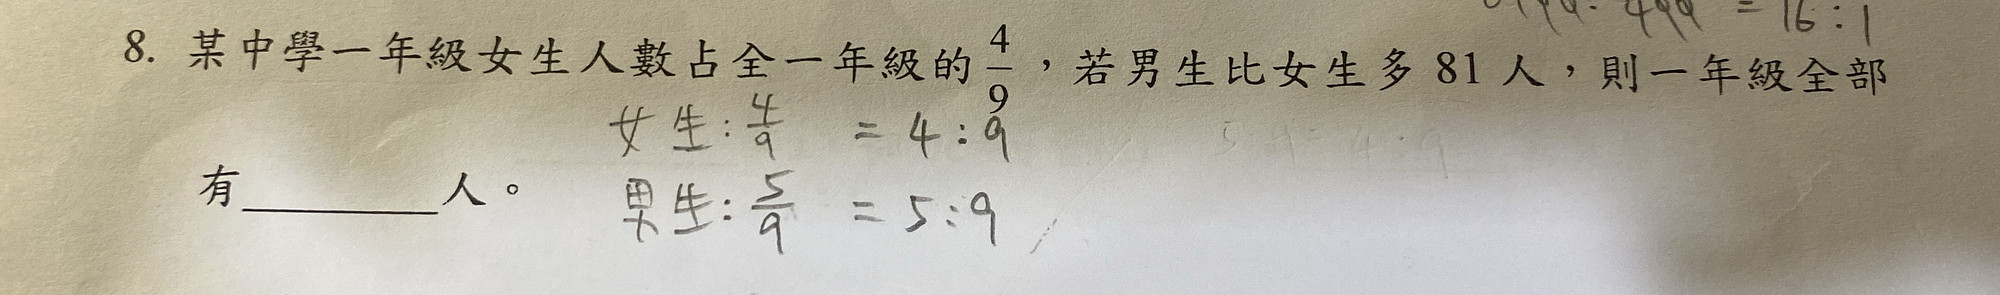 = 16 : 1
8. 某中學一年級女生人數占全一年級的 4/9,若男生比女生多 81 人,則一年級全部
女生: 4/9 = 4 : 9
有________人。
男生: 5/9 = 5 : 9